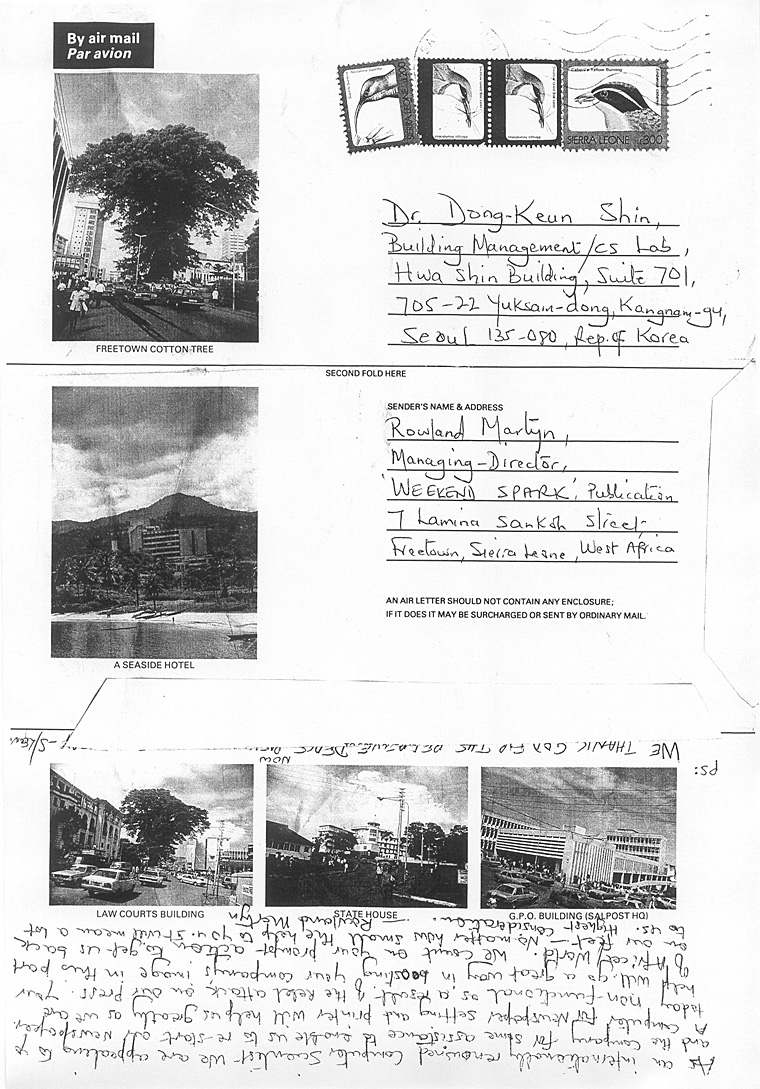 By air mail
Par avion
SIERRA LEONE
Yellow Bunting
SIERRA LEONE Le300
FREETOWN COTTON TREE
Dr. Dong-Keun Shin,
Building Management/CS Lab,
Hwa Shin Building, Suite 701,
705-22 Yuksam-dong, Kangnam-gu,
Seoul 135-080, Rep. of Korea
SECOND FOLD HERE
A SEASIDE HOTEL
SENDER'S NAME & ADDRESS
Rowland Martyn,
Managing-Director,
'WEEKEND SPARK', Publication
7 Lamina Sankoh Street,
Freetown, Sierra Leone, West Africa
AN AIR LETTER SHOULD NOT CONTAIN ANY ENCLOSURE;
IF IT DOES IT MAY BE SURCHARGED OR SENT BY ORDINARY MAIL.
LAW COURTS BUILDING
STATE HOUSE
G.P.O. BUILDING (SALPOST HQ)
As an internationally renowned Computer Scientist we are appealing to
and the Company for some assistance to enable us to re-start our Newspaper.
A Computer for Newspaper setting and printer will help us greatly as we are
today non-functional as a result of the Rebel attack on our Press. Your
help will go a great way in boosting your companys image in this part
of Africa/World. We count on your prompt action to get us back
on our feet - No matter how small the help to you. It will mean a lot
to us. Highest Consideration. - Rowland Martyn
PS:
WE THANK GOD FOR THE RELATIVE PEACE
NOW